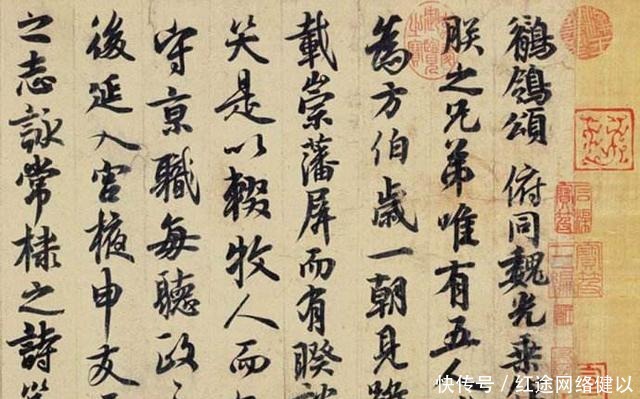 鶺鴒頌 俯同魏光乘
朕之兄弟唯有五人
為方伯歲一朝見
載崇藩屏而有睽
笑是以輟牧人而
守京職每聽政
後延入宮掖申友
之志詠常棣之詩
快传号／红途网络健以